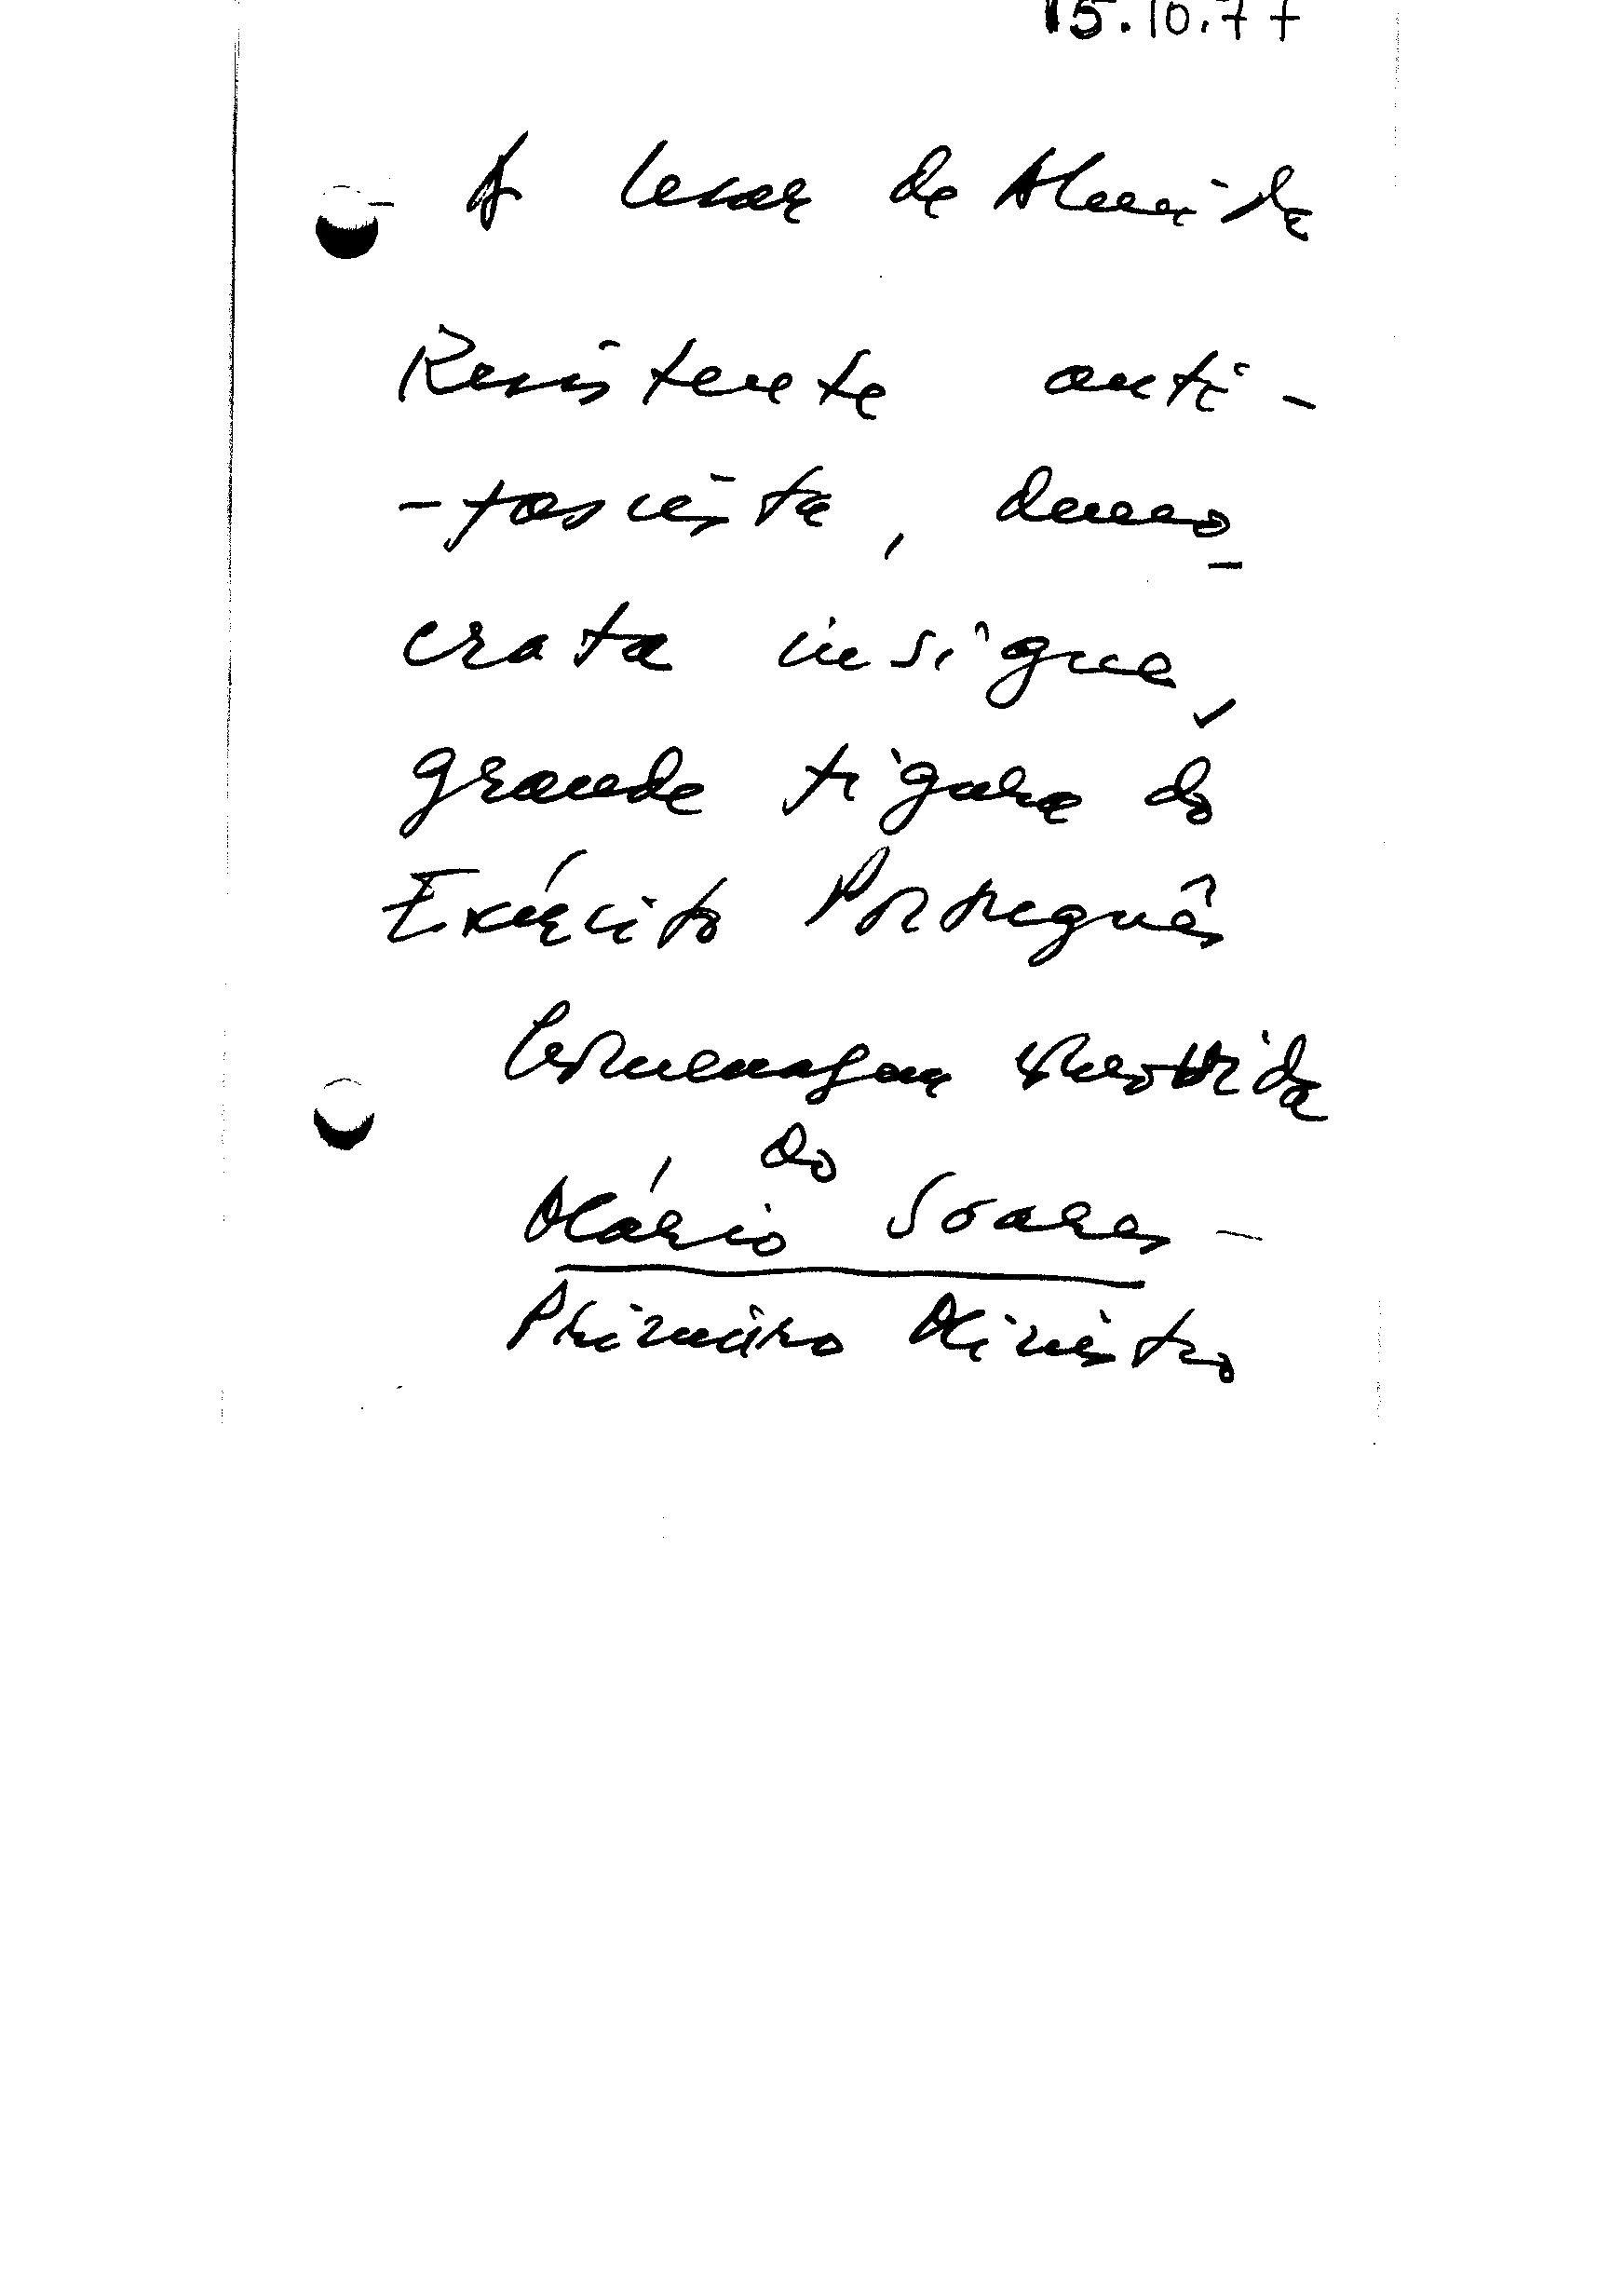 15.10.77
A Cesar de Almeida
Resistente anti-
-fascista, demo-
crata insigne,
grande figura do
Exército Português
Homenagem
do
Mário Soares -
Primeiro Ministro